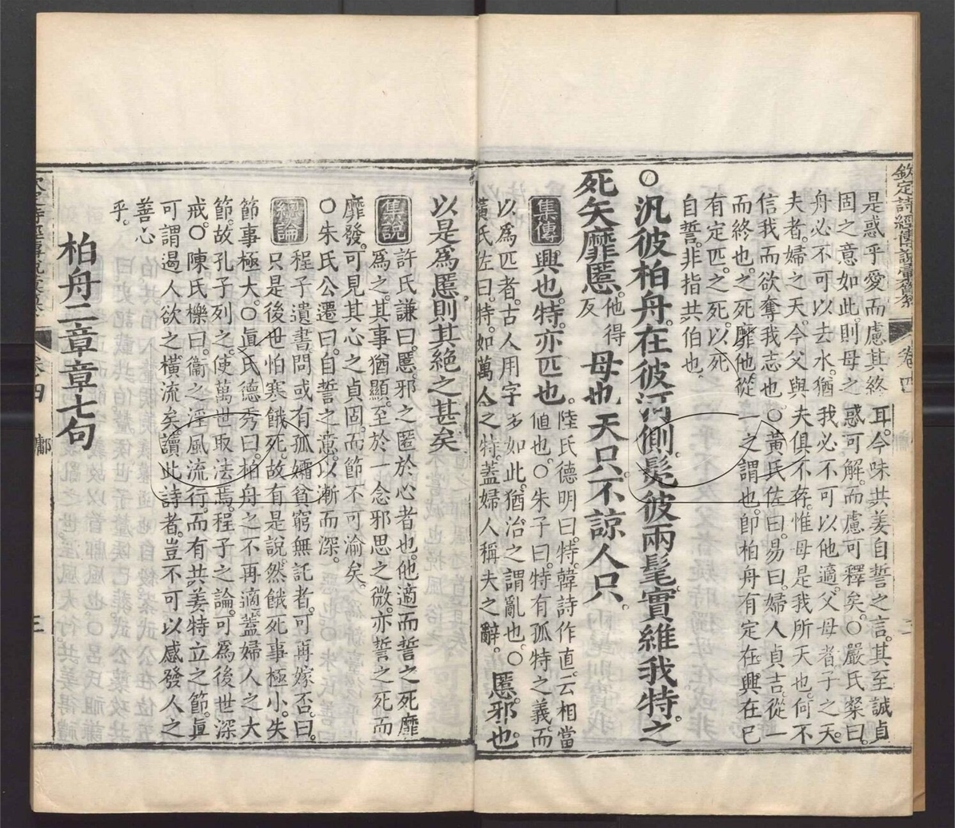 欽定詩經傳說彙纂 卷四 鄘 三
是惑乎愛而慮其終耳。今味共姜自誓之言。其至誠貞
固之意如此則母之惑可解。而慮可釋矣。○嚴氏粲曰。
舟必不可以去水。猶我必不可以他適。父母者。子之天。
夫者。婦之天。今父與夫俱不存。惟母是我所天也。何不
信我而欲奪我志也。○黃氏佐曰。易曰。婦人貞吉。從一
而終也。之死靡他。從一之謂也。即柏舟有定在。興在已
有定匹。之死。以死
自誓。非指共伯也。
○汎彼柏舟。在彼河側。髧彼兩髦。實維我特。之
死矢靡慝。他得反母也天只。不諒人只。
集傳 興也。特。亦匹也。陸氏德明曰。特。韓詩作直。云相當
值也。○朱子曰。特有孤特之義。而
以為匹者。古人用字多如此。猶治之謂亂也。○
黃氏佐曰。特。如萬人之特。蓋婦人稱夫之辭。慝。邪也。
以是為慝。則其絕之甚矣。
集說 許氏謙曰。慝。邪之匿於心者也。他適而誓之死靡
為之。其事猶顯。至於一念邪思之微。亦誓之死而
靡發。可見其心之貞固而節不可渝矣。
○朱氏公遷曰。自誓之意。以漸而深。
總論 程子遺書。問或有孤孀貧窮無託者。可再嫁否。曰。
只是後世怕寒餓死。故有是說。然餓死事極小。失
節事極大。○眞氏德秀曰。柏舟之不再適。蓋婦人之大
節。故孔子列之。使萬世取法焉。程子之論。可為後世深
戒。○陳氏櫟曰。衞之淫風流行。而有共姜特立之節。眞
可謂遏人欲之橫流矣。讀此詩者。豈不可以感發人之
善心
乎。
柏舟二章章七句
卷四 鄘 三